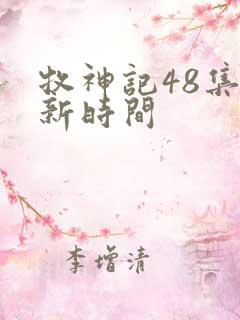 牧神記48集
新時間
李增清